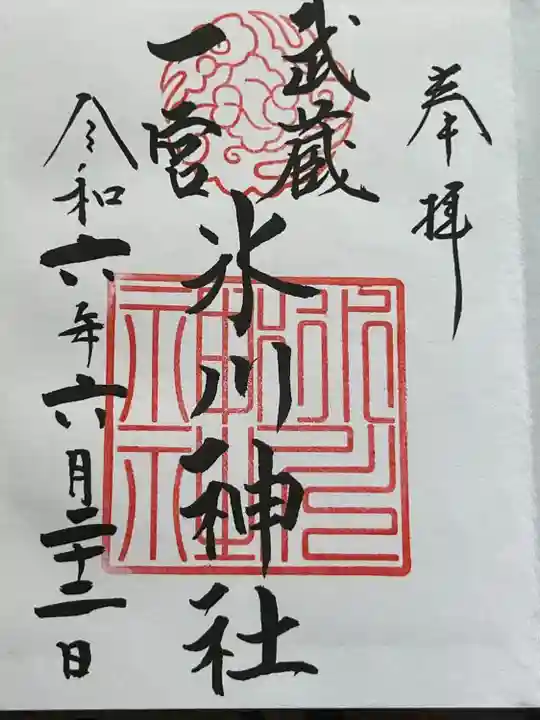 奉拝
武蔵
一宮
氷川神社
令和六年六月二十二日